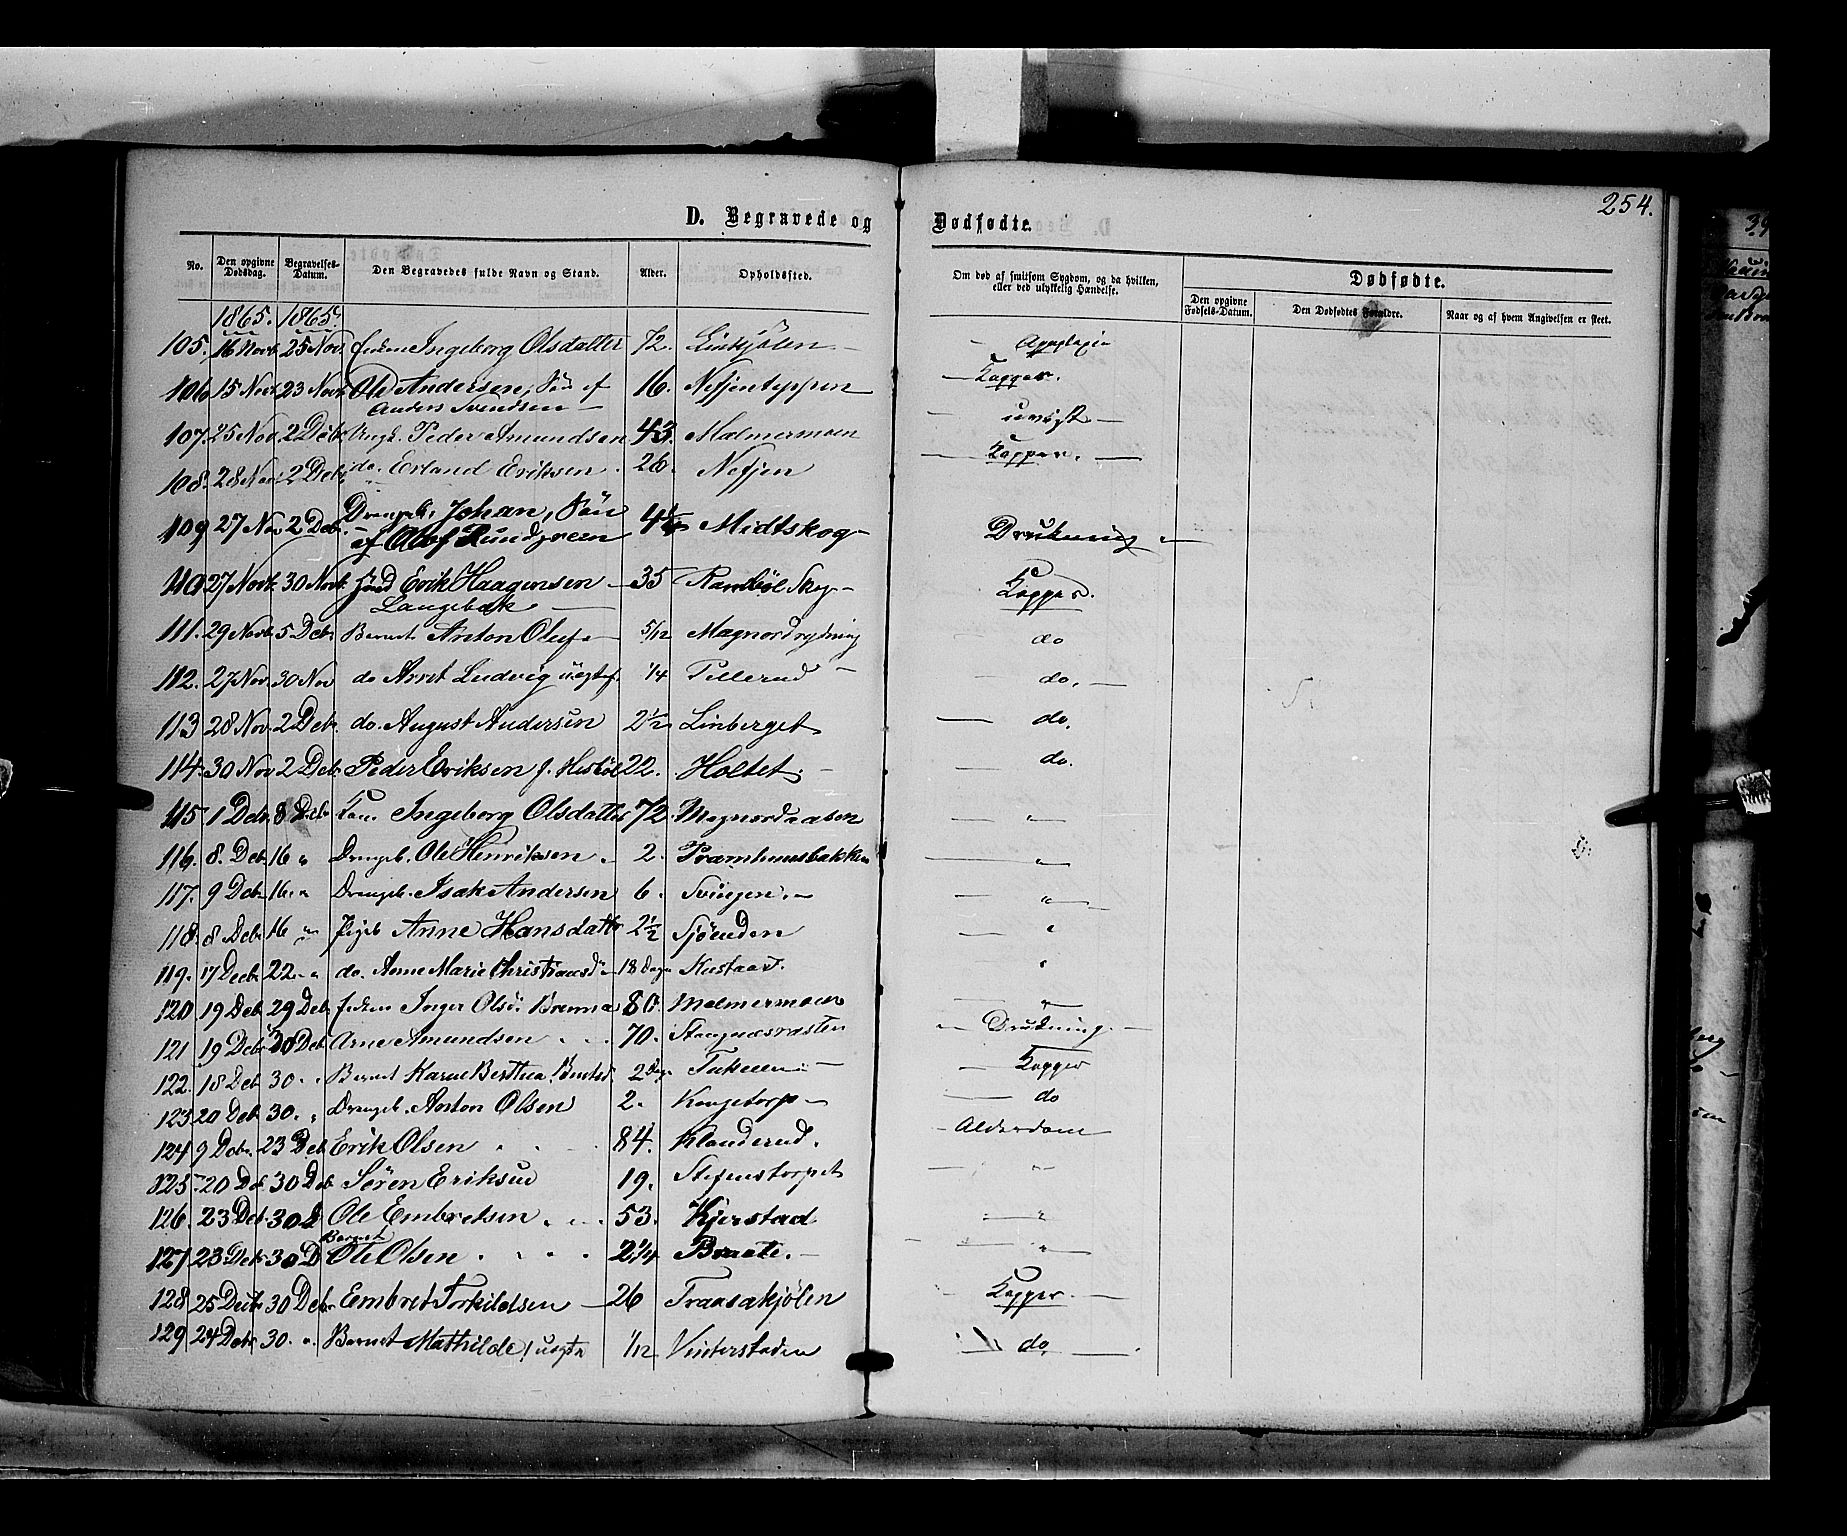 254.
D. Begravede og Dødfødte.
No. Den opgivne Dødsdag. Begravelses-Datum. Den Begravedes fulde Navn og Stand. Alder. Opholdssted. Om død af smitsom Sygdom, og da hvilken, eller ved ulykkelig Hændelse. Dødfødte.
Den opgivne Fødsels-Datum. Den Dødfødtes Forældre. Naar og af hvem Angivelsen er skeet.
1865. 1865.
105. 16 Novb 25 Nov Enken Ingeborg Olsdatter 72. Linkjölen – Apoplexie
106 15 Novb 23 Novb Ole Andersen, Sön af 16. – Kopper.
Anders Svendsen –
107. 25 Nov. 2 Deb. Ungk. Peder Amundsen 43. Malmermoen uvist –
108. 28 Nov 2 Deb do. Erland Eriksen. 26. Kopper. –
109 27 Nov 2 Deb. Drengeb. Johan, Sön 4¼ Midtskog – Drukning
af Olof
110 27 Novb. 30 Novb Erik Haagensen – 35 Kopper.
Langebæk –
111. 29 Novb 5 Deb Barnet Anton Oluf – 5/12 Magnordrydning do
112. 27 Nov. 30 Nov do Ludvig uægtef. 1/4 Pellerud – do. –
113 28 Nov 2 Deb. do. August Andersen 2½ Linberget – do.
114. 30 Nov 2 Deb. Peder Eriksen f. 22. Holtet. – do.
115. 1 Deb. 8 Deb Ingeborg Olsdatter 72. Magnordaasen – "
116. 8. Deb 16 " Drengeb. Ole Henriksen. 2. Pramhuusbakken – "
117. 9 Deb 16. " Drengeb. Isak Andersen 6. Svingen. – – "
118. 8 Deb. 16 " Pigeb Anne Hansdatter 2½ Sjöenden "
119. 17 Decb 22 – " do. Anne Marie Christiansd – 18 Dage "
120 19 Deb 29 Deb Enken Inger Olsd. Brenna 80. Malmermoen "
121 19 Deb 30 Deb. Arne Amundsen 70. – Drukning. –
122. 18 Deb. 30 " Barnet Karen Berthea 2 Dage Kopper
123. 20 Deb 30. " Drengeb. Anton Olsen 2. Kongetorp – – do
124 9 Deb. 23 Deb Erik Olsen 84. Klanderud. – Alderdom
125 – 20 Deb 30 Deb Sören Eriksen 19. Stefenstorpet – "
126. 23 Deb. 30 D Ole Embretsen 53. Kjerstad – "
127 23 Deb. 30 D Barnet Ole Olsen 2¼ Braate. – – "
128 25 Decb. 30 Deb. Embret Torkildsen – 26 Traasakjölen Kopper. –
129 24 Deb 30. " Barnet Mathilde, uægte 1/12 Vinterstaden do.